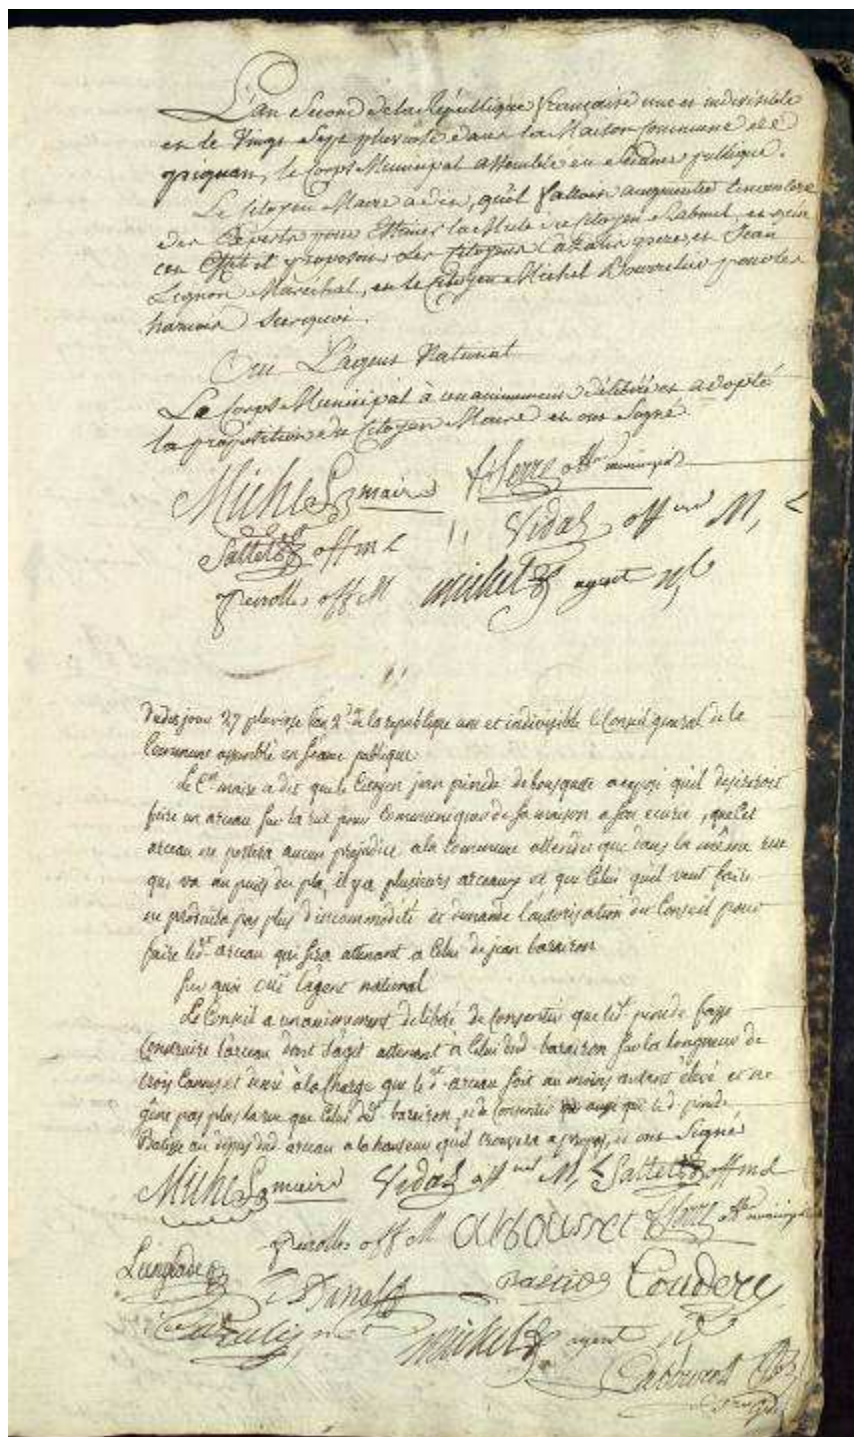 L'an Second de la République française une et indivisible
et le Vingt Sept pluviose dans la Maison Commune de
pignan, le Corps Municipal assemblé en séance publique.
Le Citoyen Maire a dit, qu'il falloit augmenter
des Experts pour Estimer la Mule du Citoyen
cet Effet il proposoit les Citoyens et Jean
Lignon Maréchal, et le Citoyen Michel Bourrelier pour les
harnois Surquoi.
Oui L'agent National
Le Corps Municipal à unanimement délibéré et adopté
la proposition du Citoyen Maire et ont Signé.
Michel maire Serre off municipal
Sattet off ml Vidal off M,
peirolles off M michel agent nl
Dudit jour 27 pluviose l'an 2 de la republique une et indivisible le Conseil general de la
Commune assemblé en séance publique.
Le Cen maire a dit que le Citoyen jean pinede de bousquete a exposé quil desireroit
faire un arceau sur la rue pour Communiquer de sa maison a son ecurie, que cet
arceau ne portera aucun prejudice a la Commune attendu que dans la même rue
qui va au puits du pla, il y a plusieurs arceaux et que Celui quil veut faire
ne produira pas plus d'incommodité et demande l'autorisation du Conseil pour
faire led. arceau qui sera attenant a Celui de jean barairon
sur quoi oui l'agent national
Le Conseil a unanimement delibéré de Consentir que led. pinede fasse
Construire l'arceau dont s'agit attenant a Celui dud. barairon sur la longueur de
troy Cannes et demi à la Charge que le d. arceau soit au moins autant élevé et ne
gêne pas plus la rue que Celui dud. barairon, et de Consentir aussi que led. pinede
Batisse au dessus dud. arceau a la hauteur quil trouvera a propos, et ont Signé
Michel maire Vidal off M, Sattet off ml
peirolles off M Serre off municipal
Lunglade Bastide Couderc
michel agent nl